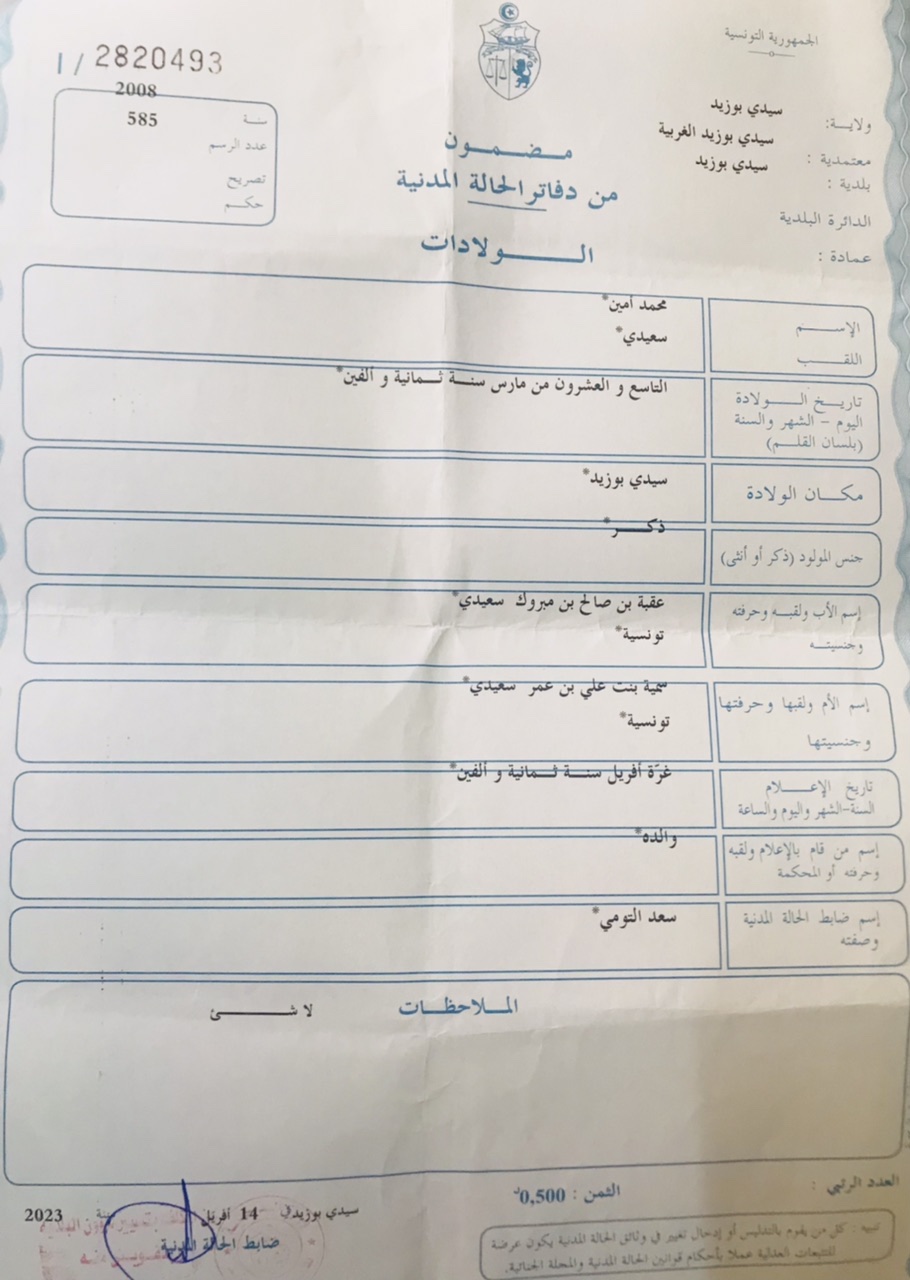 الجمهورية التونسية
ولايـة: سيدي بوزيد
معتمدية : سيدي بوزيد الغربية
بلدية : سيدي بوزيد
الدائرة البلدية
عمادة :
1/ 2820493
سنـة 2008
عدد الرسم 585
تصريح
حكـم
مـضـمـــون
من دفاتر الحالة المدنية
الــــولادات
الإســـم محمد أمين*
اللقـب سعيدي*
تاريـخ الـــولادة التاسع و العشرون من مارس سنـة ثـمانية و ألفين*
اليوم - الشهر والسنة
(بلسان القلـم)
مكـان الولادة سيدي بوزيد*
جنس المولود (ذكر أو أنثى) ذكـــر*
إسم الأب ولقبـه وحرفته عقبة بن صالح بن مبروك سعيدي*
وجنسيتـه تونسية*
إسم الأم ولقبها وحرفتها سمية بنت علي بن عمر سعيدي*
وجنسيتها تونسية*
تاريخ الإعـــلام غرّة أفريل سنـة ثـمانية و ألفين*
السنة-الشهر واليوم والساعة
إسم من قام بالإعلام ولقبه والده*
وحرفته أو المحكمة
إسم ضابط الحالة المدنية سعد التومي*
وصفته
الملاحظـات لا شـــئ
العدد الرتبي :
الثمن : 0,500د
تنبيه : كل من يقوم بالتدليس أو إدخال تغيير في وثائق الحالة المدنية يكون عرضة
للتتبعات العدلية عملا بأحكام قوانين الحالة المدنية والمجلة الجنائية.
سيدي بوزيد في 14 أفريل سنة 2023
ضابط الحالة المدنية